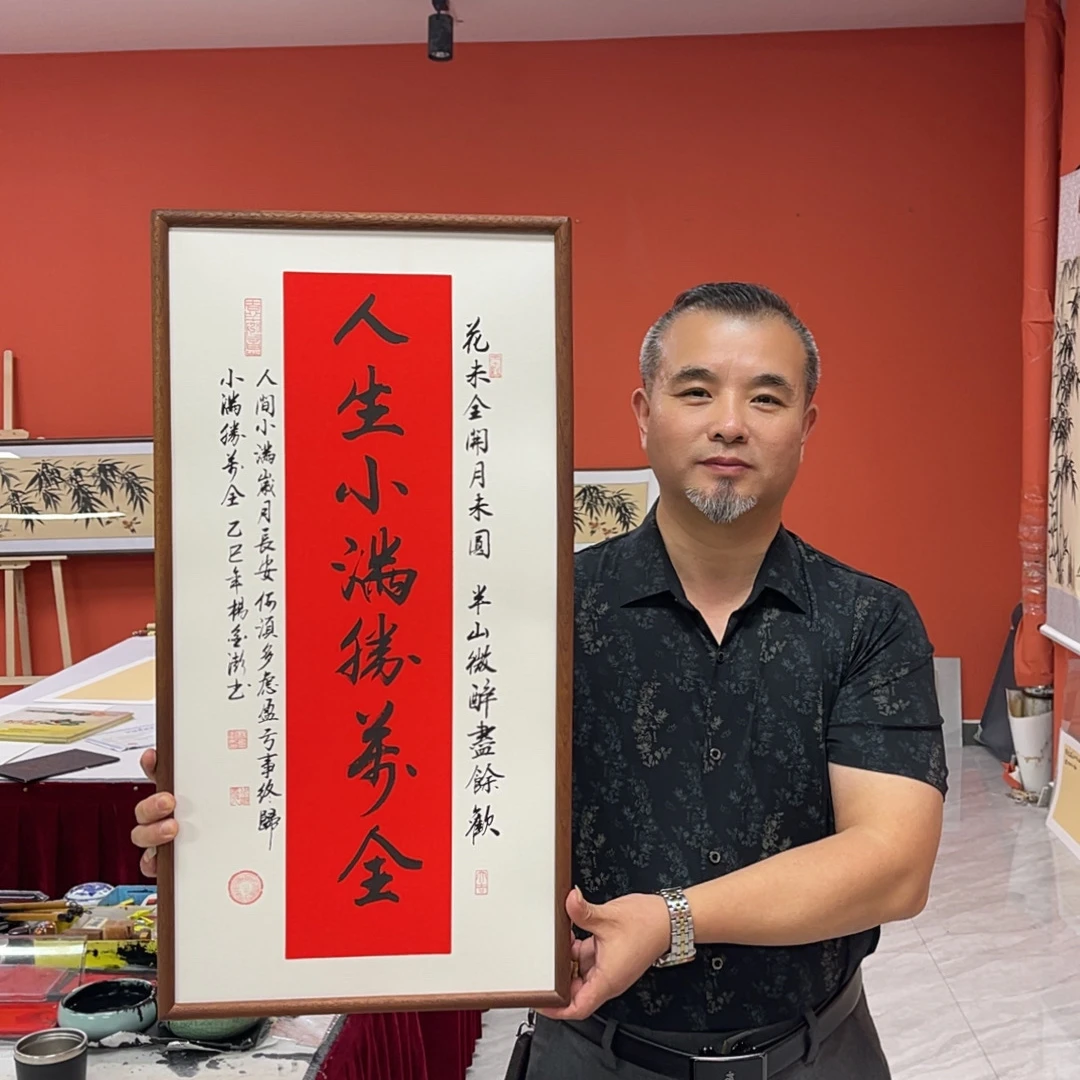 花未全開月未圓 半山微醉盡餘歡
人生小滿勝萬全
人间小满歲月長安何須多慮盈亏事终歸
小满勝萬全 乙巳年楊金澎书